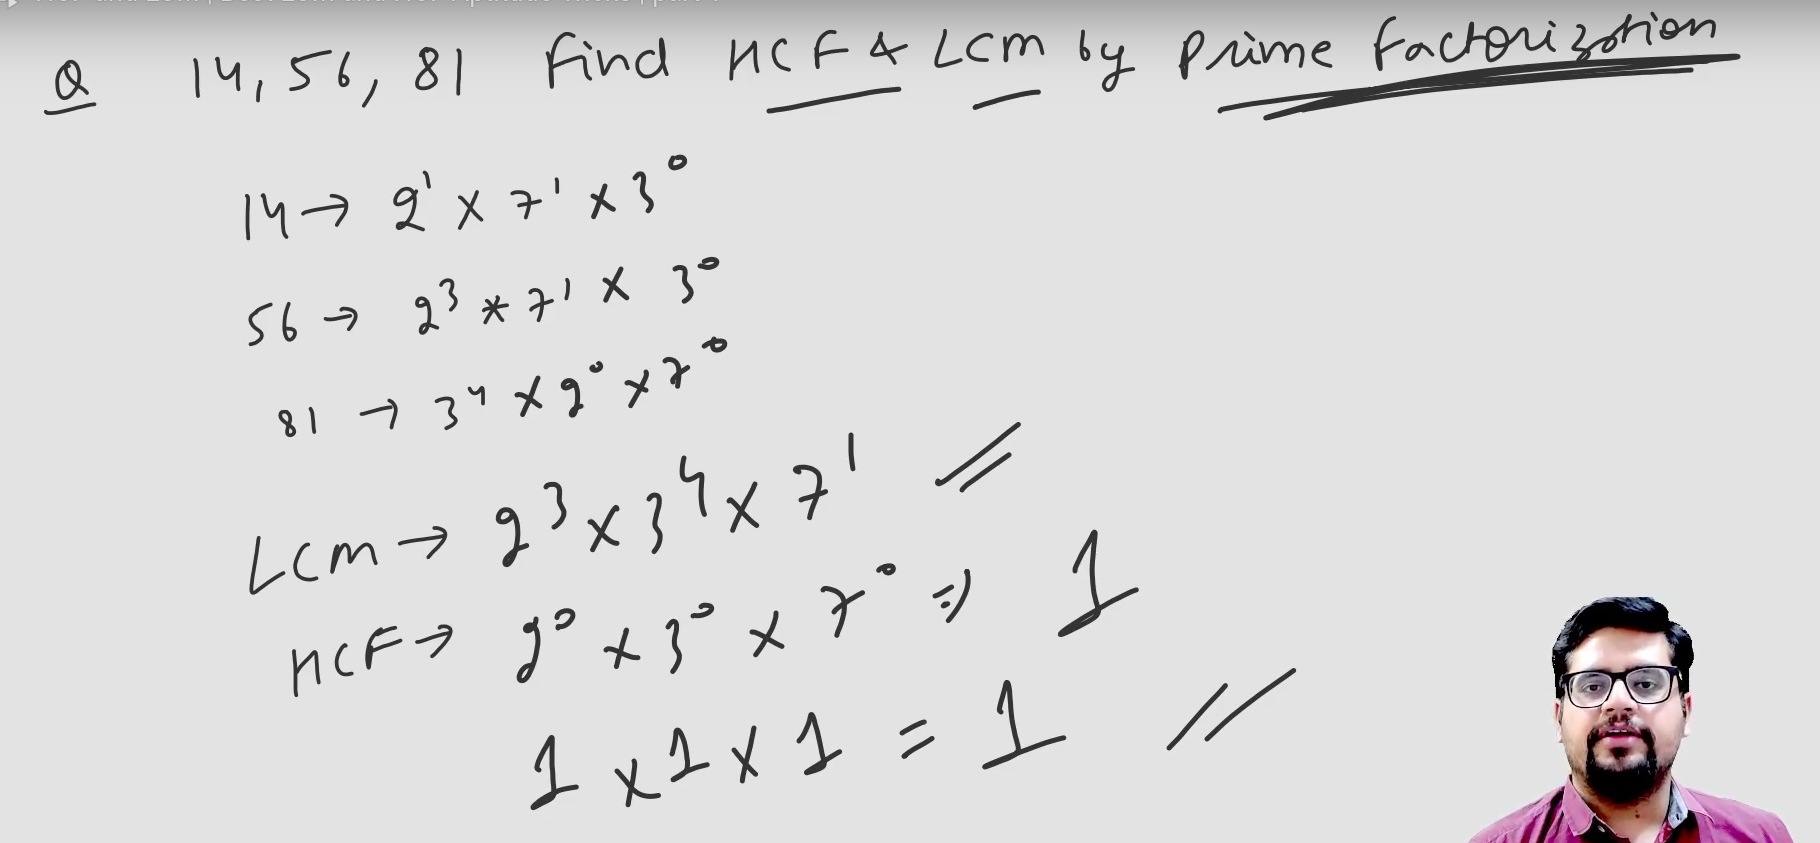 Q 14, 56, 81 Find HCF & LCM by Prime Factorization
14 → 2¹ × 7¹ × 3⁰
56 → 2³ * 7¹ × 3⁰
81 → 3⁴ × 2⁰ × 7⁰
LCM → 2³ × 3⁴ × 7¹
HCF → 2⁰ × 3⁰ × 7⁰ ⇒ 1
1 × 1 × 1 = 1